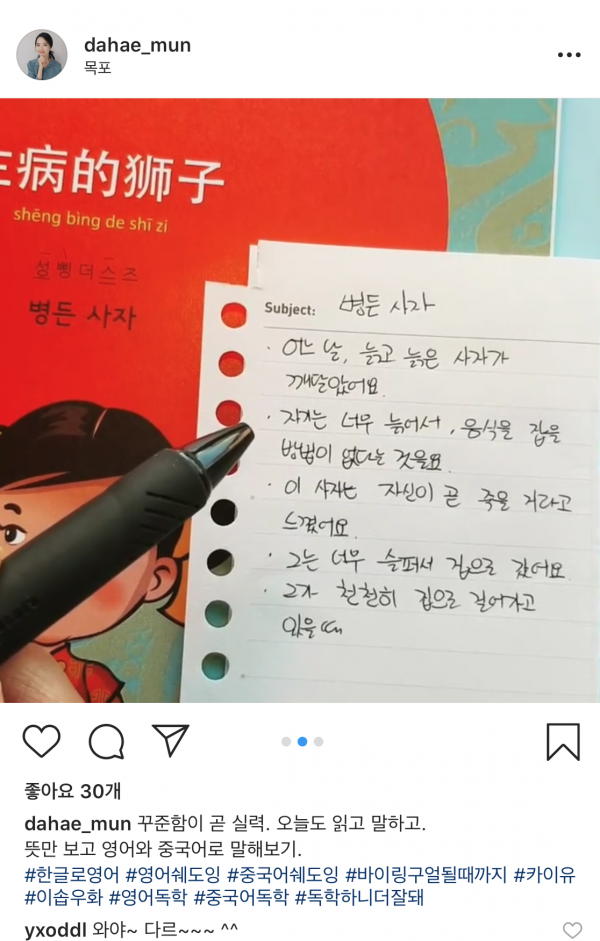 dahae_mun
목포
生病的狮子
shēng bìng de shī zi
셩 삥 더 스 즈
병든 사자
Subject: 병든 사자
· 어느 날, 늙고 늙은 사자가
깨달았어요.
· 자기는 너무 늙어서, 음식을 잡을
방법이 없다는 것을요.
· 이 사자는 자신이 곧 죽을 거라고
느꼈어요.
· 그는 너무 슬퍼서 집으로 갔어요.
· 그가 천천히 집으로 걸어가고
있을 때
좋아요 30개
dahae_mun 꾸준함이 곧 실력. 오늘도 읽고 말하고.
뜻만 보고 영어와 중국어로 말해보기.
#한글로영어 #영어쉐도잉 #중국어쉐도잉 #바이링구얼될때까지 #카이유
#이솝우화 #영어독학 #중국어독학 #독학하니더잘돼
yxoddl 와야~ 다르~~~ ^^